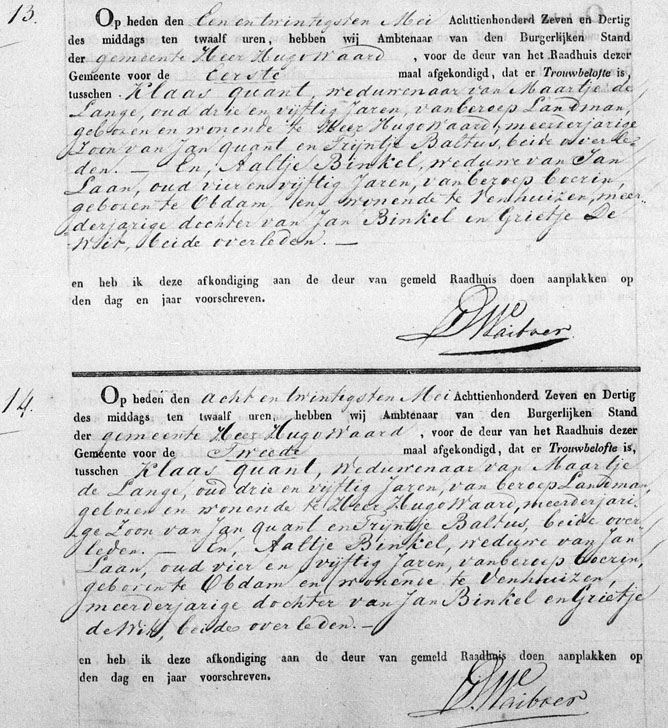 13.
Op heden den Een en twintigsten Mei Achttienhonderd Zeven en Dertig
des middags ten twaalf uren, hebben wij Ambtenaar van den Burgerlijken Stand
der gemeente Heer Hugo Waard, voor de deur van het Raadhuis dezer
Gemeente voor de eerste maal afgekondigd, dat er Trouwbelofte is,
tusschen Klaas quant, weduwenaar van Maartje de
Lange, oud drie en vijftig Jaren, van beroep Landman,
geboren en wonende te Heer Hugo Waard, meerderjarige
Zoon van Jan quant en Trijntje Baltus, beide overle-
den. — En, Aaltje Binkel, weduwe van Jan
Laan, oud vier en vijftig Jaren, van beroep boerin,
geboren te Obdam en wonende te Venhuizen, meer-
derjarige dochter van Jan Binkel en Grietje De
Wit, beide overleden. —
en heb ik deze afkondiging aan de deur van gemeld Raadhuis doen aanplakken op
den dag en jaar voorschreven.
14.
Op heden den acht en twintigsten Mei Achttienhonderd Zeven en Dertig
des middags ten twaalf uren, hebben wij Ambtenaar van den Burgerlijken Stand
der gemeente Heer Hugo Waard, voor de deur van het Raadhuis dezer
Gemeente voor de Tweede maal afgekondigd, dat er Trouwbelofte is,
tusschen Klaas quant, weduwenaar van Maartje
de Lange, oud drie en vijftig Jaren, van beroep Landman,
geboren en wonende te Heer Hugo Waard, meerderjari-
ge Zoon van Jan quant en Trijntje Baltus, beide over-
leden. — En, Aaltje Binkel, weduwe van Jan
Laan, oud vier en vijftig Jaren, van beroep boerin,
geboren te Obdam en wonende te Venhuizen,
meerderjarige dochter van Jan Binkel en Grietje
de Wit, beide overleden. —
en heb ik deze afkondiging aan de deur van gemeld Raadhuis doen aanplakken op
den dag en jaar voorschreven.